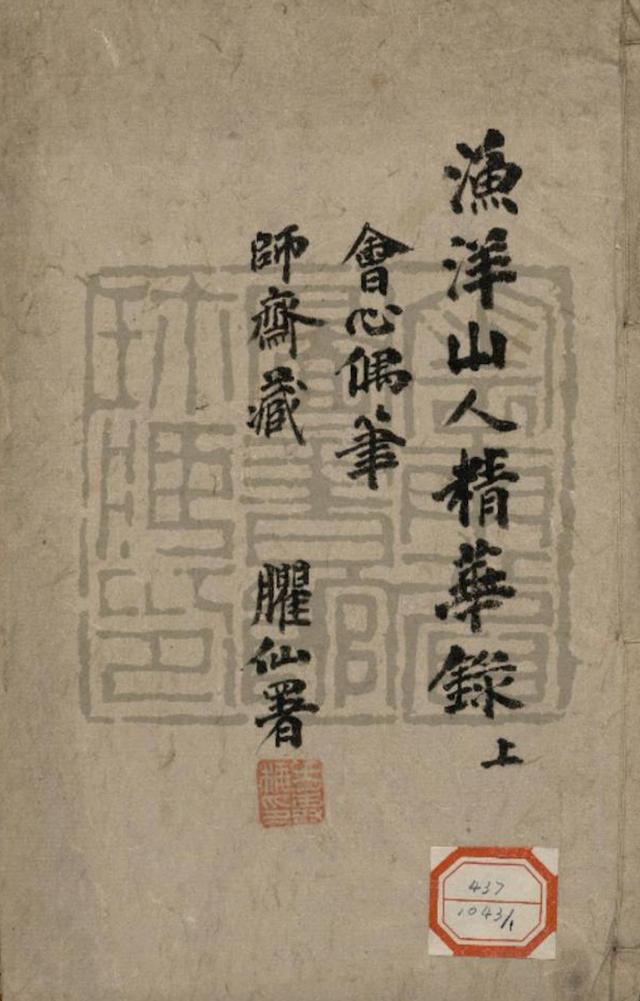 漁洋山人精華錄 上
會心偶筆
師齋藏 臞仙署
437
1043/1